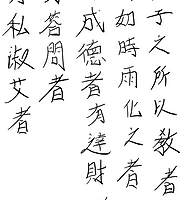 子之所以教者
如時雨化之者
成德者有達財
答問者
私淑艾者